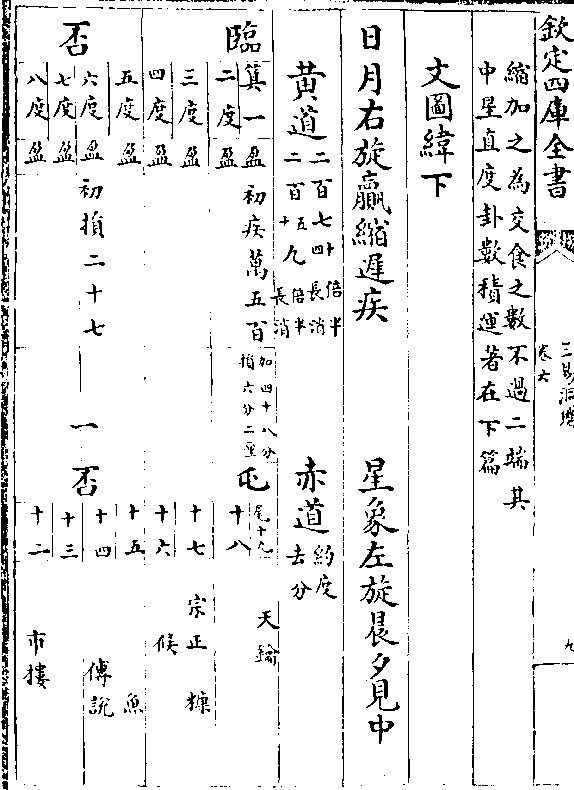 欽定四庫全書
三易洞璣
卷六
九
縮加之為交食之數不過二端其
中星直度卦數積運著在下篇
文圖緯下
日月右旋贏縮遲疾
星象左旋晨夕見中
黃道
二百七十四倍半長消
二百五十九倍半長消
赤道
約度去分
臨
箕一 盈 初疾萬五百
加四十八分
損六分二釐
屯
尾十九 天鑰
二度 盈
十八
三度 盈
十七 宗正 糠
四度 盈
十六 候
五度 盈
十五 魚
否
六度 盈 初損二十七
一
否
十四 傅說
七度 盈
十三
八度 盈
十二 市樓